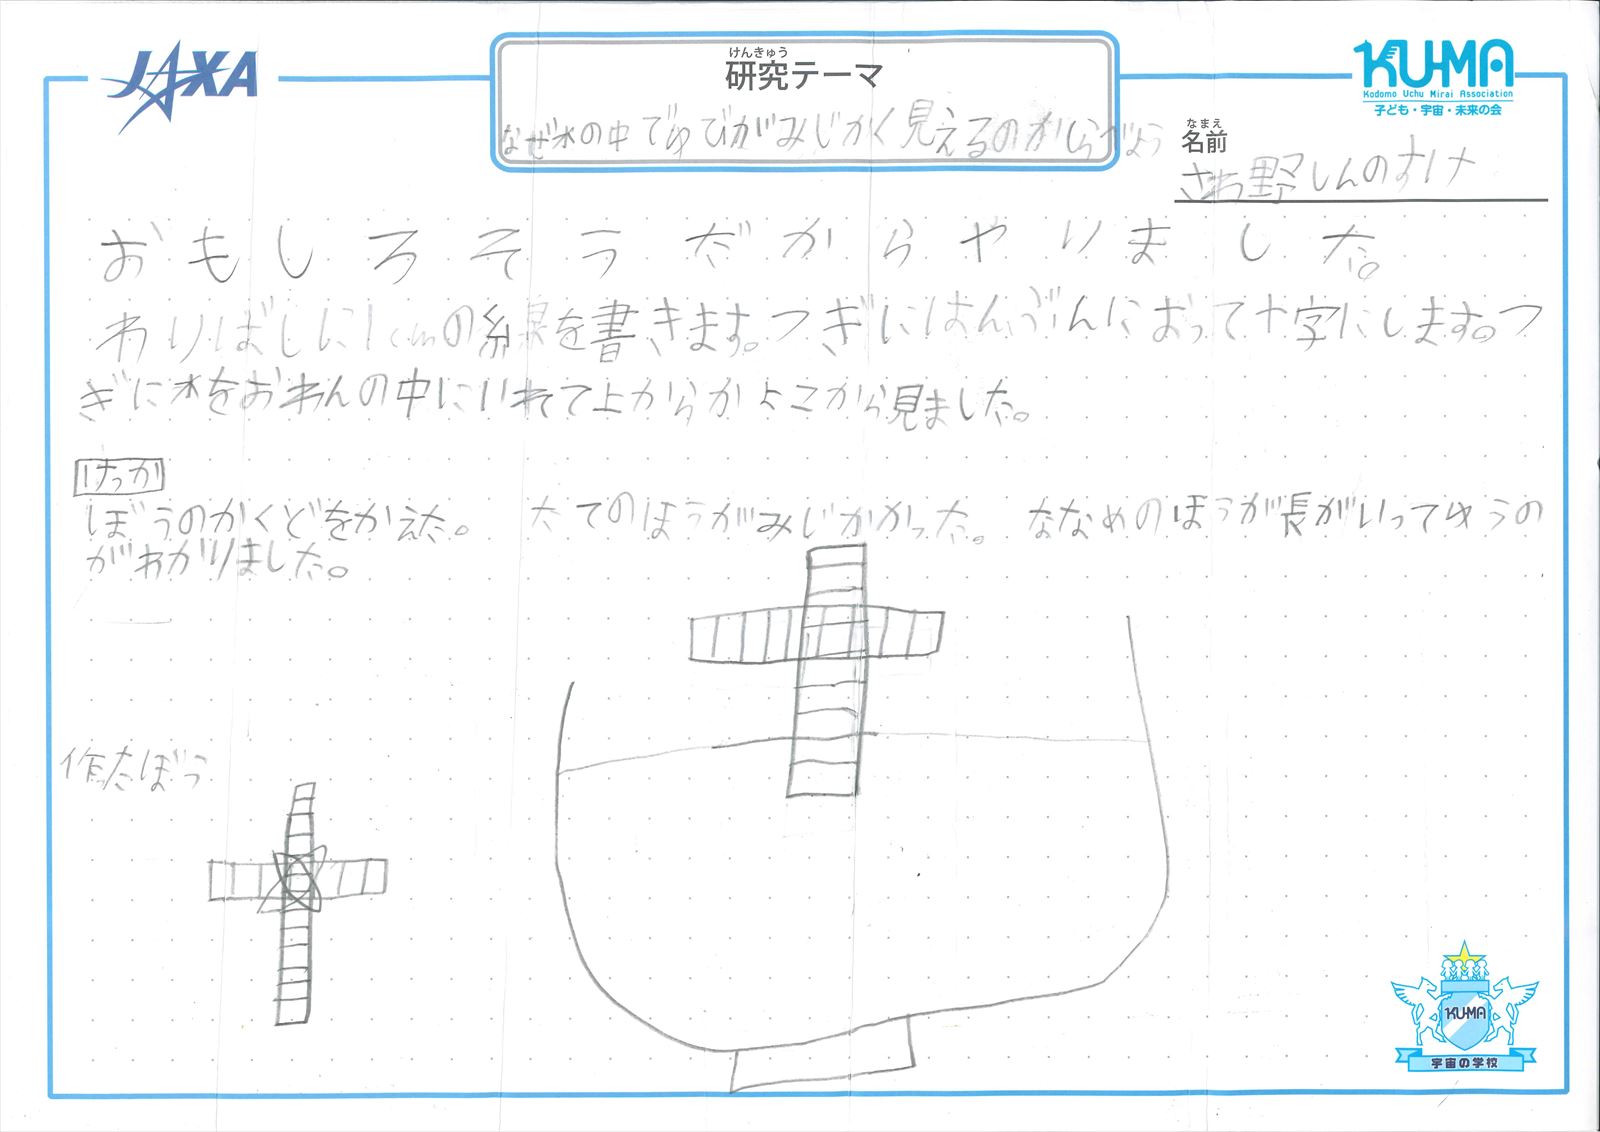 JAXA
けんきゅう
研究テーマ
KU-MA
Kodomo Uchu Mirai Association
子ども・宇宙・未来の会
なぜ水の中でゆびがみじかく見えるのかしらべよう
なまえ
名前
さわ野しんのすけ
おもしろそうだからやりました。
わりばしに1cmの線を書きます。つぎにはんぶんにおって十字にします。つ
ぎに水をおわんの中にいれて上からかよこから見ました。
けっか
ぼうのかくどをかえた。 たてのほうがみじかかった。 ななめのほうが長がいってゆうの
がわかりました。
作たぼう
KU-MA
宇宙の学校